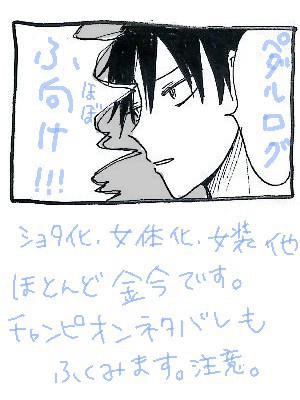 ペダルログ
ほぼ
ふ、向け!!!
ショタ化、女体化、女装他
ほとんど金今です。
チャンピオンネタバレも
ふくみます。注意。